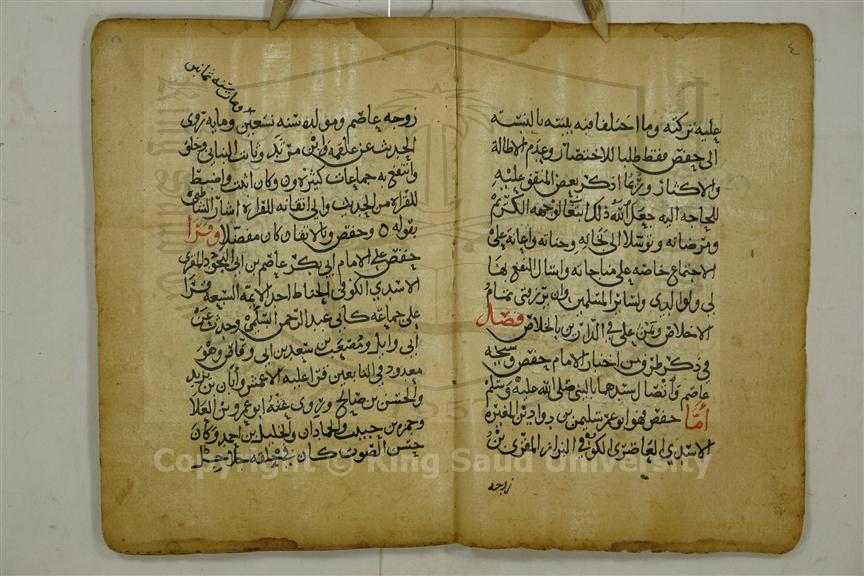 عليه تركته وما اختلفا فيه بينته بالنسبة
الى حفص فقط طلبا للاختصار وعدم الاطالة
والاكثار وربما اذكر بعض المتفق عليه
للحاجة اليه جعل الله ذلك لوجهه الكريم
ومرضاته وتوسلا الى وجناته واعانة على
الاجتماع خاصة على مناجاته واسال النفع بها
لي ولوالدي ولسائر المسلمين وان يرزقني تمام
الاخلاص ويمن علي في الدارين بالخلاص فصل
في ذكر طرف من اخبار الامام حفص وشيخه
عاصم واتصال سندهما بالنبي صلى الله عليه وسلم
اما حفص فهو ابو عمر سليمن بن المغيرة
الاسدي الغاضري الكوفي البزاز المقري بن
زوجه
زوجة عاصم ومولده سنة تسعين وماية روى
ومات سنة ثمانين
الحديث عن علقمة بن مرثد وثابت البناني
وانتفع به جماعات كثيرون وكان اثبت واضبط
للقراة من الحديث والى اتقانه للقراة اشار الشاطبي
بقوله ٥ وحفص وبالاتقان كان مفضلا وقرا
حفص على الامام ابي بكر عاصم بن ابي النجود المقري
الاسدي الكوفي الحناط احد الايمة السبعة قرا
على جماعة كابي عبد الرحمن السلمي وحدث عن
ابي وايل ومصعب بن سعد بن ابي وقاص وهو
معدود في التابعين قرا عليه الاعمش وابان بن يزيد
والحسن بن صالح وروى عنه ابو عمرو بن العلا
وحمزة بن حبيب والحمادان والخليل بن احمد وكان
حسن الصوت كان في
Copyright © King Saud University